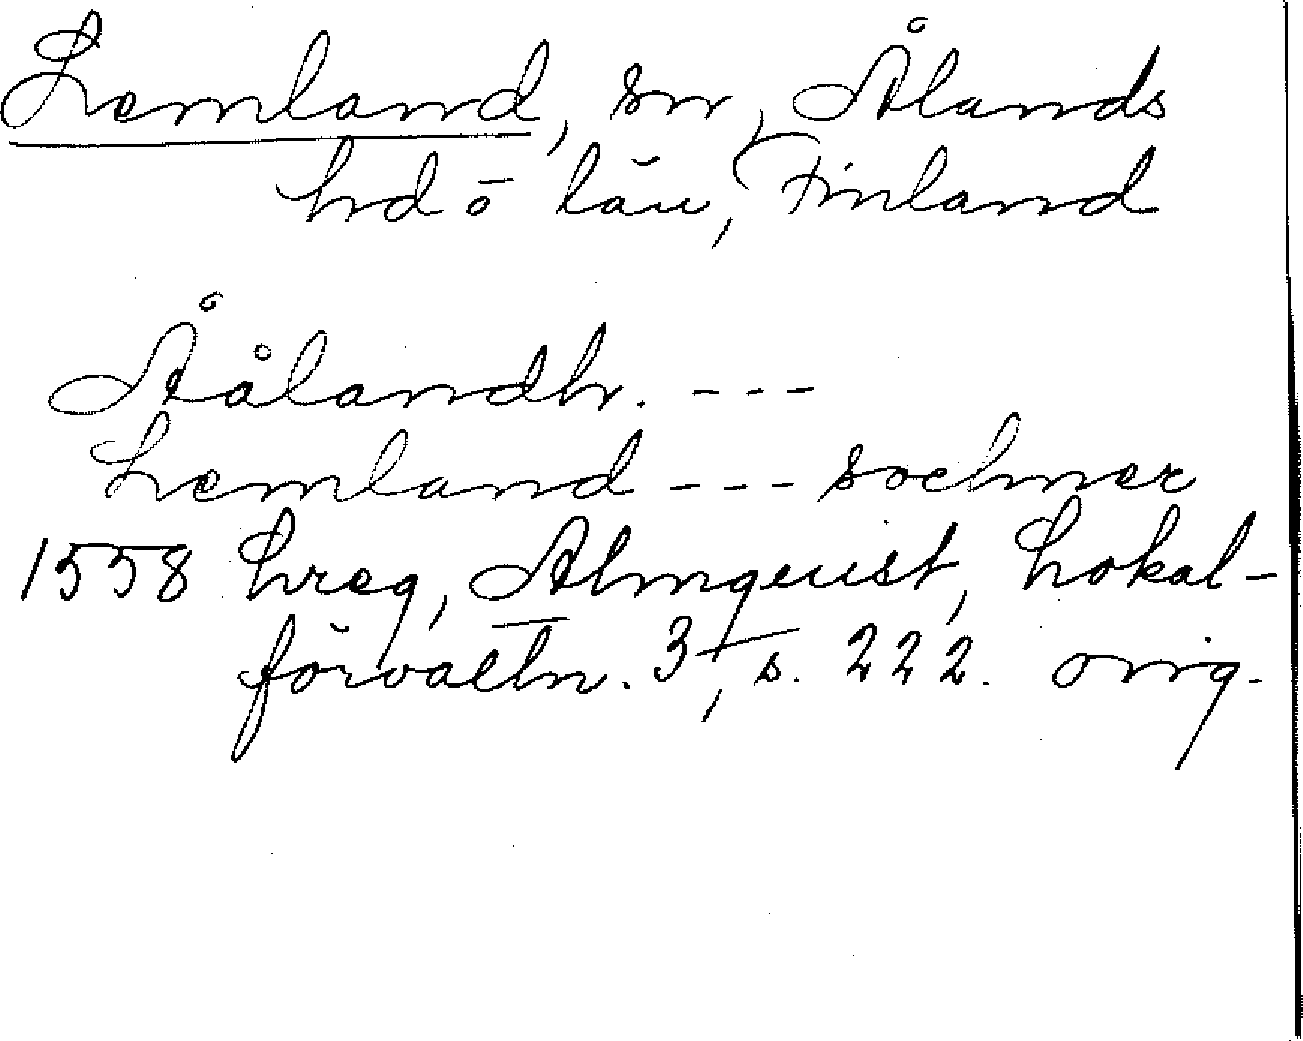 Lemland, sn, Ålands
hd o län, Finland
Åålandh. ---
Lemland --- sochner
1558 hreg, Almquist, Lokal-
förvaltn. 3, s. 222. orig.